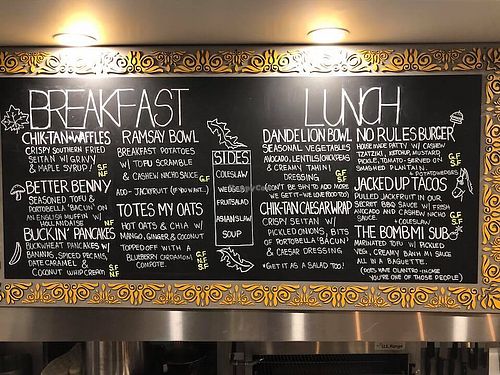 BREAKFAST
CHIK-TAN+WAFFLES
CRISPY SOUTHERN FRIED
SEITAN W/ GRAVY
& MAPLE SYRUP! SF
NF
BETTER BENNY
SEASONED TOFU &
PORTOBELLA "BACUN" ON
AN ENGLISH MUFFIN W/
HOLLANDAISE NF
BUCKIN' PANCAKES
BUCKWHEAT PANCAKES W/
BANANAS, SPICED PECANS,
DATE CARAMEL & GF
COCONUT WHIP CREAM SF
RAMSAY BOWL
BREAKFAST POTATOES
W/ TOFU SCRAMBLE
& CASHEW NACHO SAUCE GF
ADD- JACKFRUIT (IF YOU WANT...)
TOTES MY OATS
HOT OATS & CHIA W/
MANGO, GINGER & COCONUT
TOPPED OFF WITH A
BLUEBERRY CARDAMOM
COMPOTE.
GF
NF
SF
SIDES
COLESLAW
FRUIT SALAD
ASIAN SLAW
SOUP
LUNCH
DANDELION BOWL
SEASONAL VEGETABLES
AVOCADO, LENTILS/CHICKPEAS
& CREAMY TAHINI
DRESSING GF
SF
(DON'T BE SHY TO ADD MORE
WE GET IT- WE LOVE FOOD TOO)
CHIK-TAN CAESAR WRAP
CRISPY SEITAN W/
PICKLED ONIONS, BITS
OF PORTOBELLA 'BACUN'
& CAESAR DRESSING
*GET IT AS A SALAD TOO!
NO RULES BURGER
HOUSE MADE PATTY W/ CASHEW
TZATZIKI, KETCHUP, MUSTARD
PICKLE, TOMATO- SERVED ON
SMASHED PLANTAIN GF
SF
+ POTATO WEDGES
JACKED UP TACOS
PULLED JACKFRUIT IN OUR
SECRET BBQ SAUCE W/ FRESH
AVOCADO AND CASHEW NACHO
SAUCE + COLESLAW GF
SF
THE BOMB MI SUB
MARINATED TOFU W/ PICKLED
VEG, CREAMY BANH MI SAUCE
ALL IN A BAGUETTE.
(DOES HAVE CILANTRO- INCASE
YOU'RE ONE OF THOSE PEOPLE)
U.S. Range